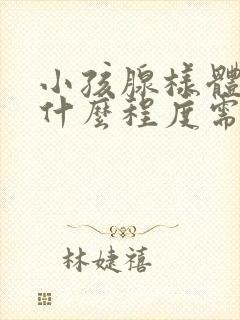 小孩腺樣體
什麼程度需
林婕禧